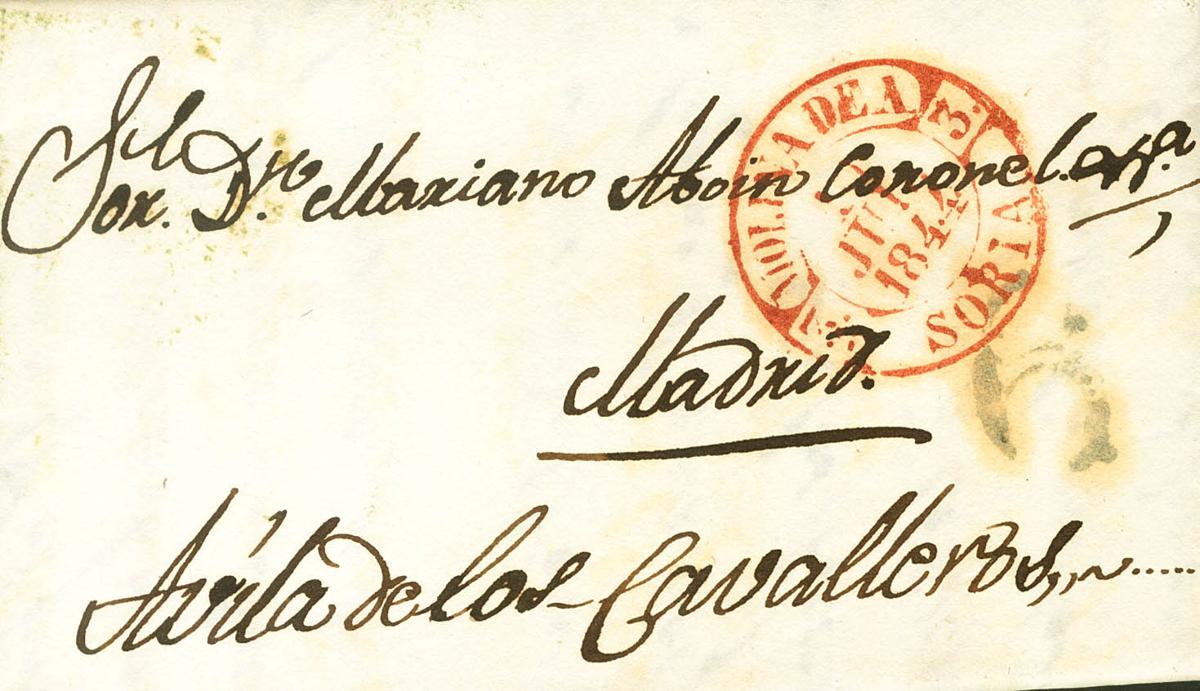 Sor. Dn. Mariano Aboin Coronel.
Madrid.
Avila de los Cavalleros
DE A
3.
SORIA
JUL
1844